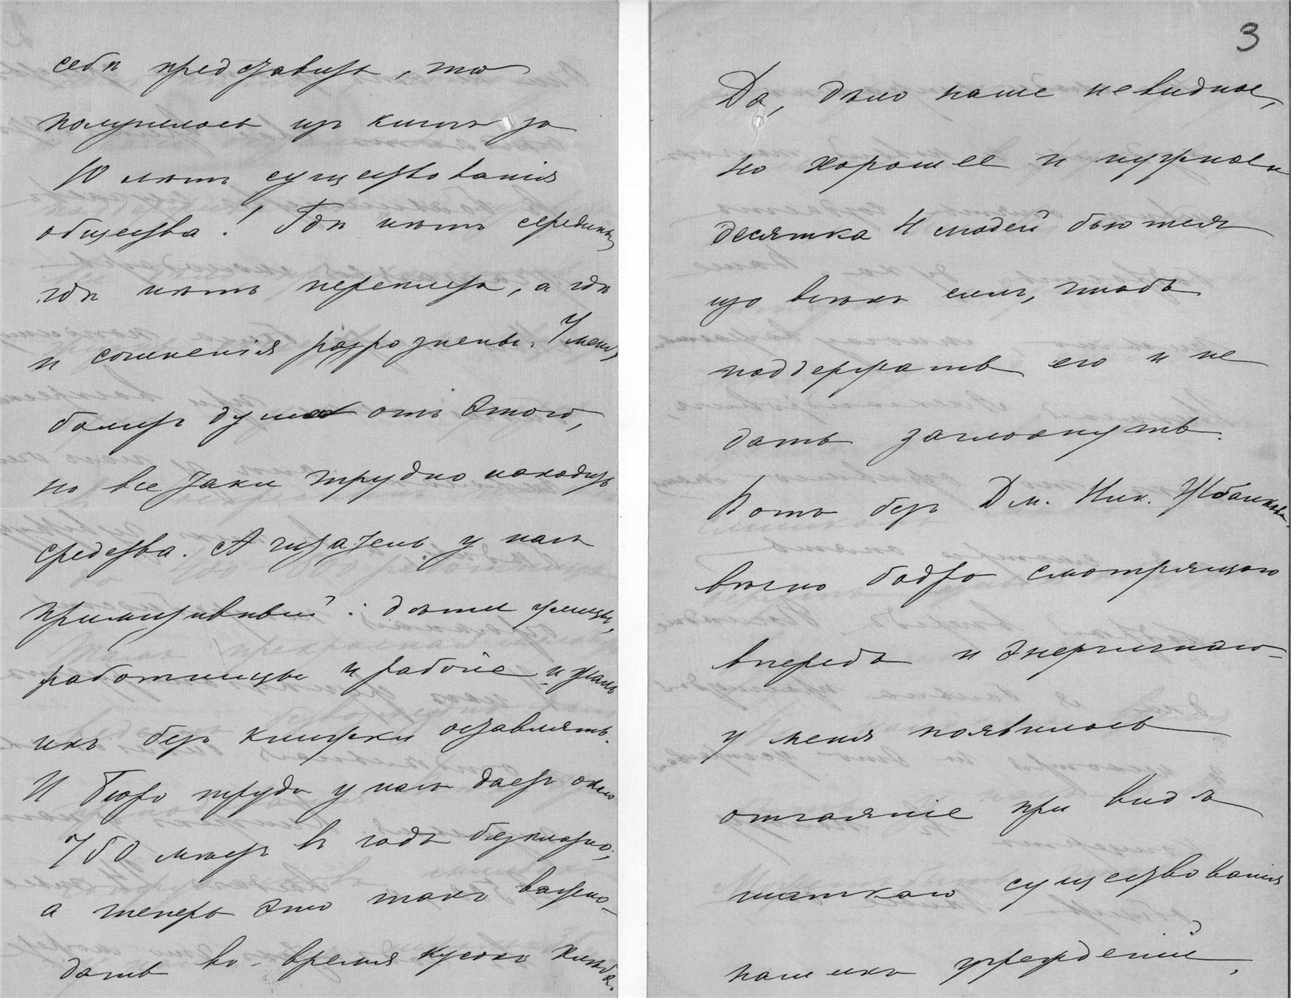 себѣ представить, что
получилось изъ книгъ за
10 лѣтъ существованія
общества! Гдѣ нѣтъ середины,
гдѣ нѣтъ переплета, а гдѣ
и сочиненія разрознены. У меня
болитъ душа отъ этого,
но всетаки трудно находить
средства. А читатель у насъ
примитивный: дѣти улицы,
работницы и рабочіе и жаль
ихъ безъ книжки оставлять.
И Бюро труда у насъ даетъ около
750 мѣстъ въ годъ безплатно,
а теперь это такъ важно
дать во-время кусокъ хлѣба.
3
Да, дѣло наше невидное,
но хорошее и нужное и
десятка 4 людей бьются
изо всѣхъ силъ, чтобъ
поддержать его и не
дать заглохнуть.
Вотъ безъ Дм. Ник. Жбанкова,
вѣчно бодро смотрящаго
впередъ и энергичнаго
у меня появилось
отчаяніе при видѣ
шаткаго существованія
нашихъ учрежденій,